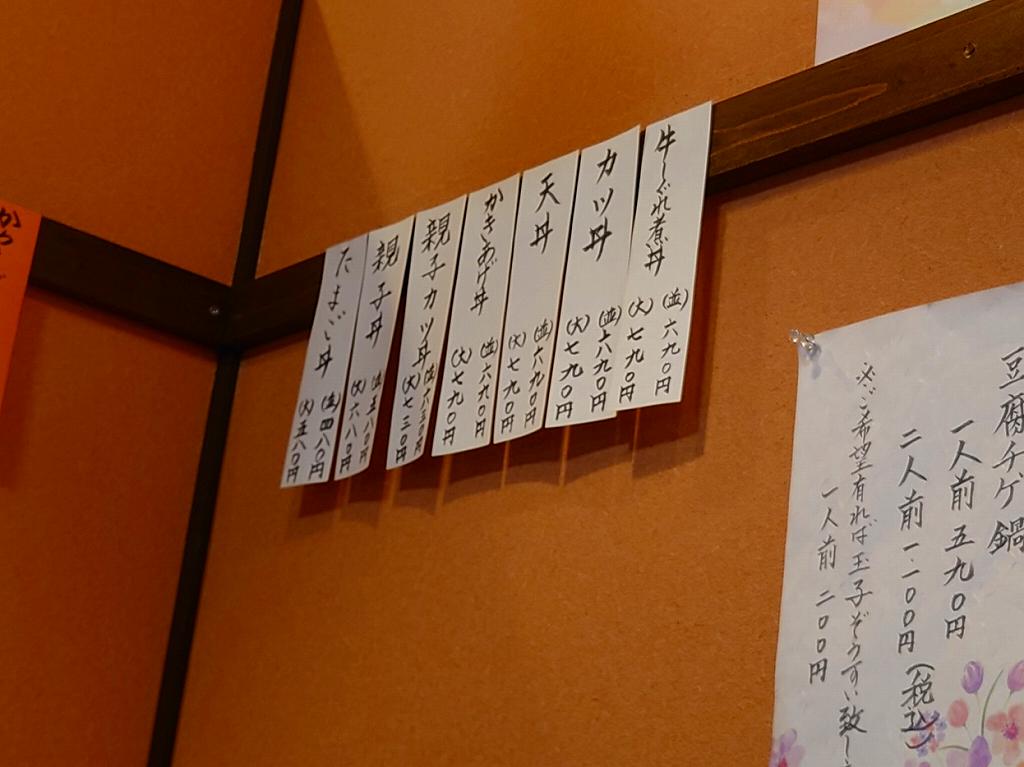 牛しぐれ煮丼
(並)六九〇円
(大)七九〇円
カツ丼
(並)六九〇円
(大)七九〇円
天丼
(並)六九〇円
(大)七九〇円
かきあげ丼
(並)六九〇円
(大)七九〇円
親子カツ丼
(並)六三〇円
(大)七三〇円
親子丼
(並)五八〇円
(大)六八〇円
たまご丼
(並)四八〇円
(大)五八〇円
豆腐チゲ鍋
一人前 五九〇円
二人前 一一〇〇円(税込)
※ご希望有れば玉子ぞうすい致し
一人前 二〇〇円